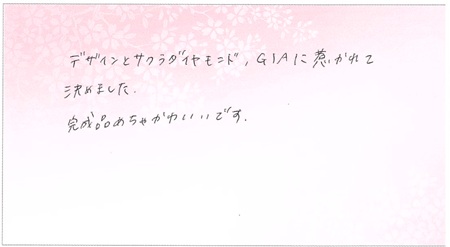 デザインとサクラダイヤモンド, GIAに惹かれて
決めました.
完成品めちゃかわいいです.